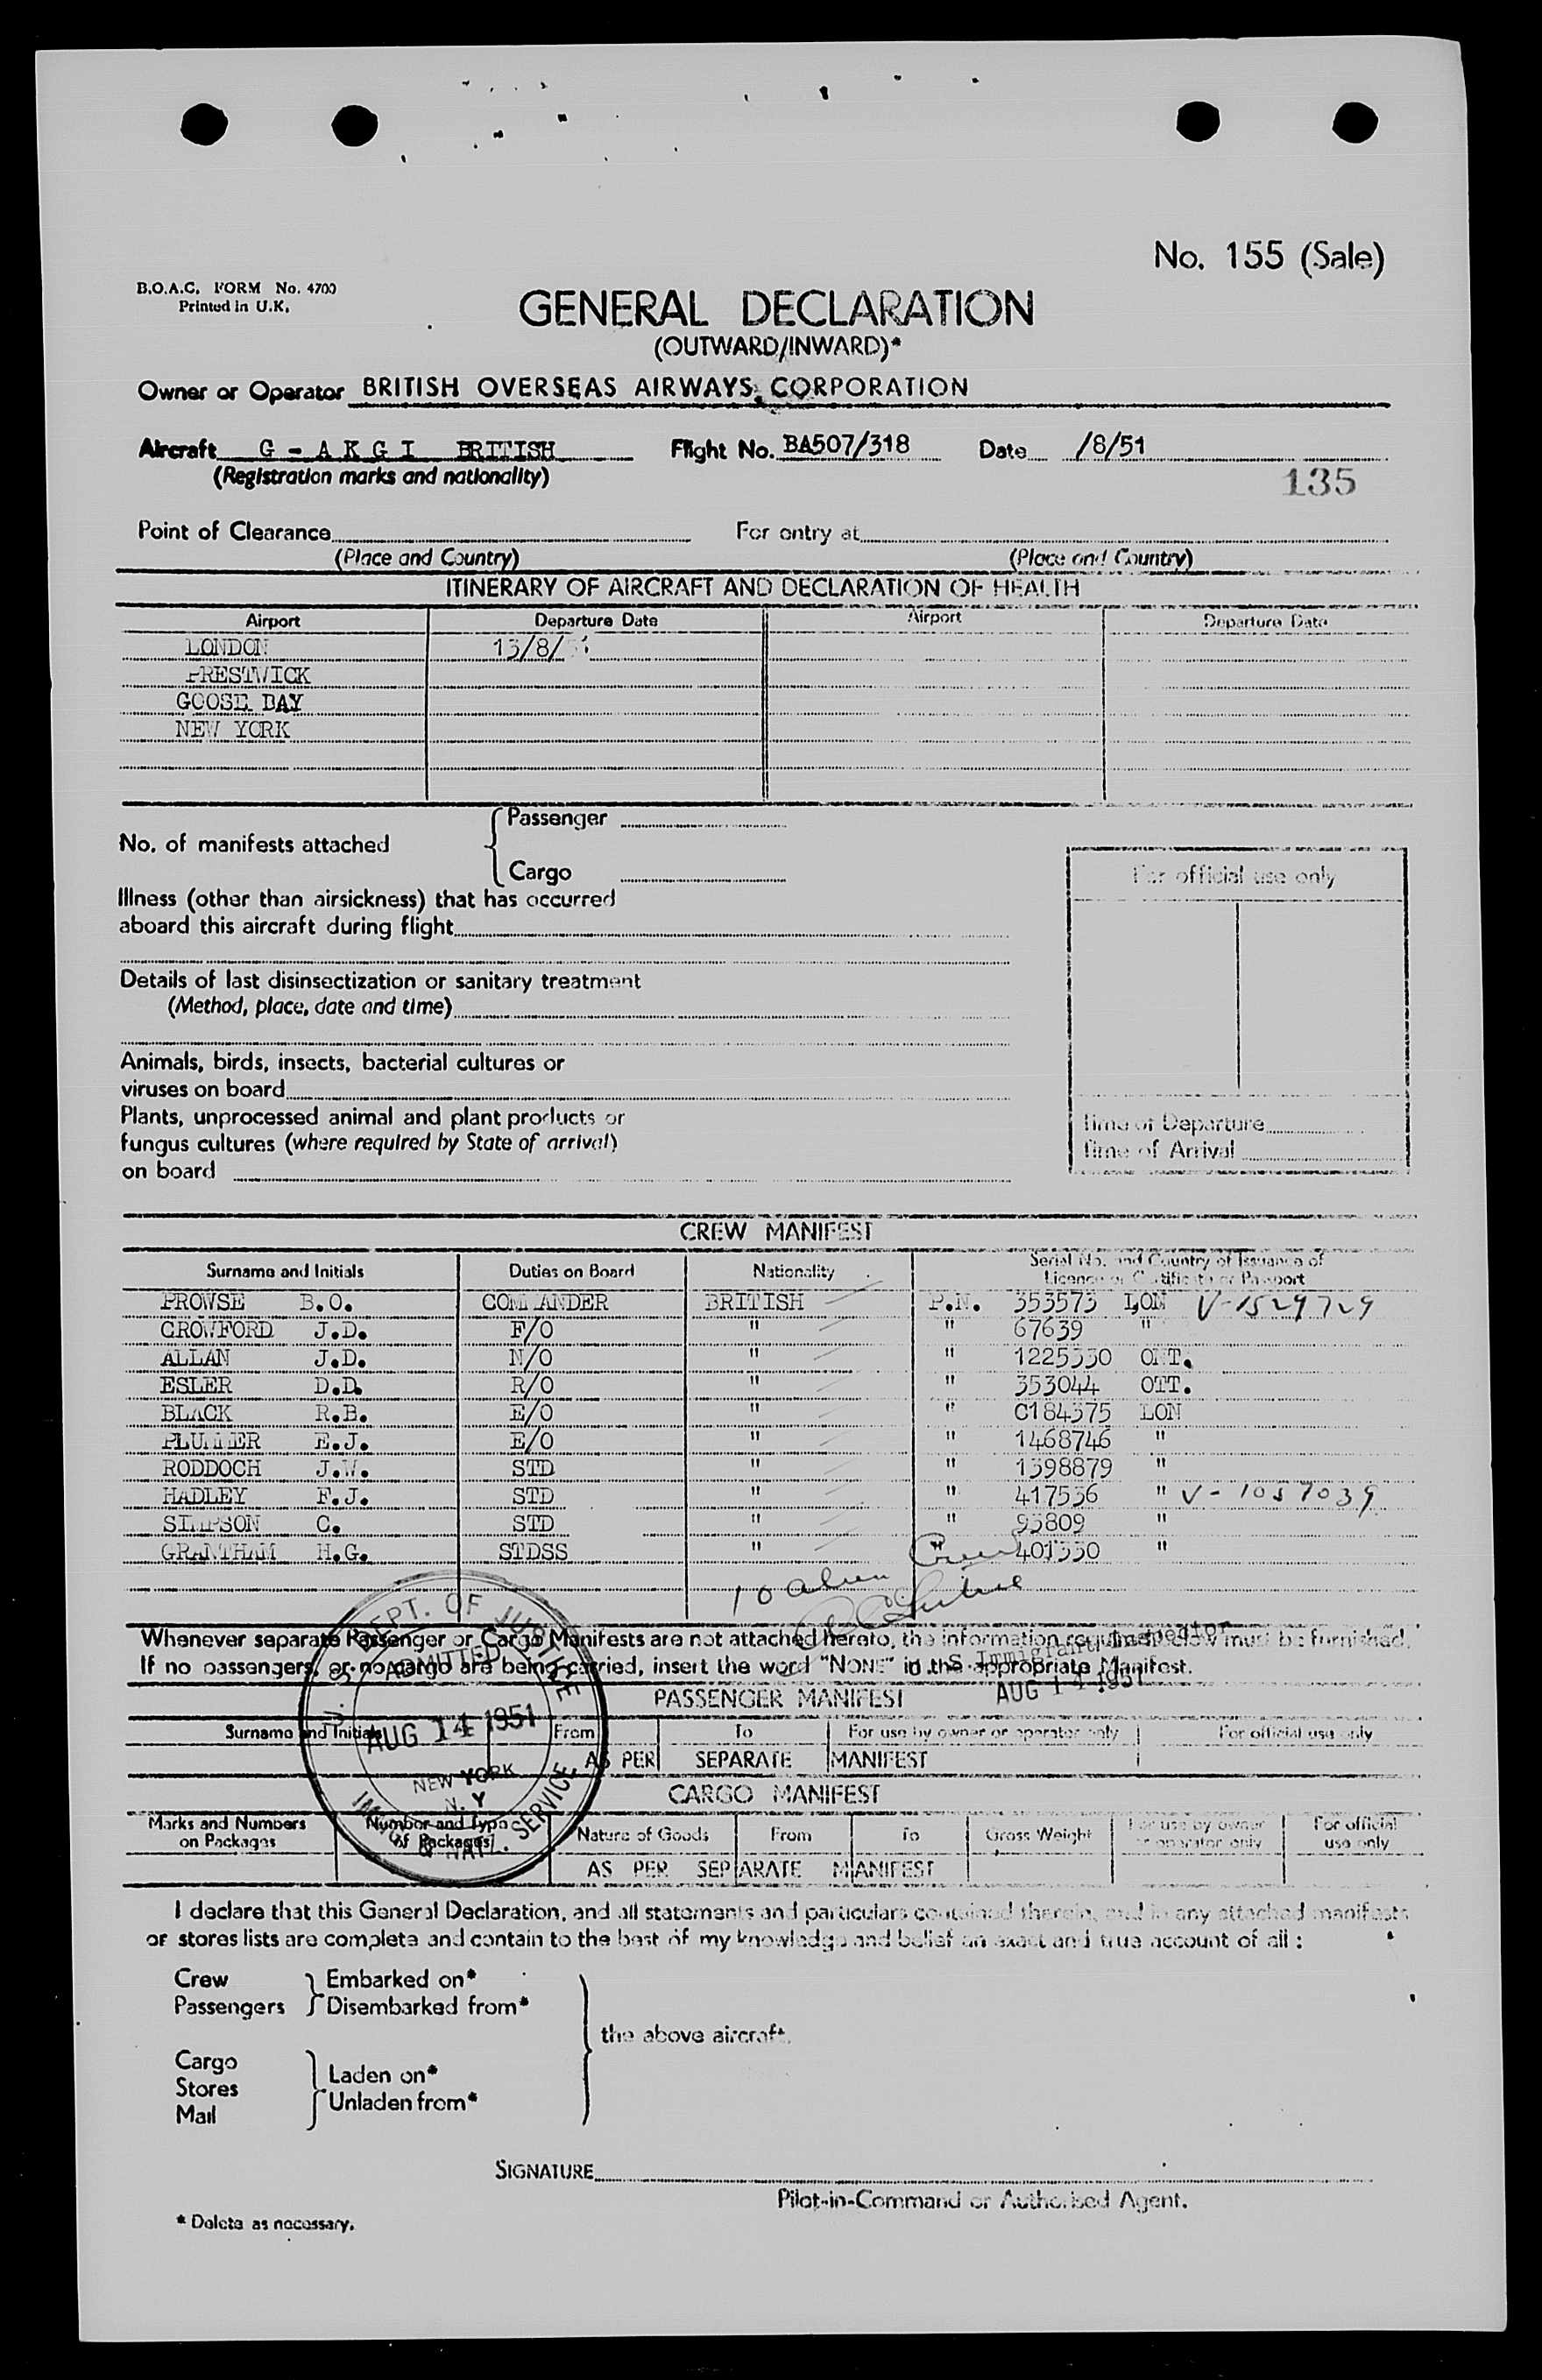 No. 155 (Sale)
B.O.A.C. FORM No. 4700
Printed in U.K.
GENERAL DECLARATION
(OUTWARD/INWARD)*
Owner or Operator BRITISH OVERSEAS AIRWAYS CORPORATION
Aircraft G - A K G I BRITISH Flight No. BA507/318 Date /8/51
(Registration marks and nationality)
135
Point of Clearance For entry at
(Place and Country) (Place and Country)
ITINERARY OF AIRCRAFT AND DECLARATION OF HEALTH
Airport Departure Date Airport Departure Date
LONDON 13/8/51
PRESTWICK
GOOSE DAY
NEW YORK
No. of manifests attached { Passenger
Cargo
For official use only
Illness (other than airsickness) that has occurred
aboard this aircraft during flight
Details of last disinsectization or sanitary treatment
(Method, place, date and time)
Animals, birds, insects, bacterial cultures or
viruses on board
Plants, unprocessed animal and plant products or
fungus cultures (where required by State of arrival)
on board
Time of Departure
Time of Arrival
CREW MANIFEST
Surname and Initials Duties on Board Nationality Serial No. and Country of Issuance of
Licence or Certificate or Passport
PROWSE B.O. COMMANDER BRITISH P.N. 353573 LON V-1529729
CROWFORD J.D. F/O " " 67639 "
ALLAN J.D. N/O " " 1225330 ONT.
ESLER D.D. R/O " " 353044 OTT.
BLACK R.B. E/O " " C184375 LON
PLUMMER E.J. E/O " " 1468746 "
RODDOCH J.W. STD " " 1398879 "
HADLEY F.J. STD " " 417536 " V-1057039
SIMPSON C. STD " " 93809 "
GRANTHAM H.G. STDSS " " 401330 "
10 alien Crew
Whenever separate Passenger or Cargo Manifests are not attached hereto, the information required below must be furnished.
If no passengers, or no cargo are being carried, insert the word "NONE" in the appropriate Manifest.
U. S. Immigrant Inspector
AUG 14 1951
DEPT. OF JUSTICE
ADMITTED
AUG 14 1951
NEW YORK
N. Y
IMMIG. & NATZ. SERVICE
PASSENGER MANIFEST
Surname and Initials From To For use by owner or operator only For official use only
AS PER SEPARATE MANIFEST
CARGO MANIFEST
Marks and Numbers on Packages Number and Type of Packages Nature of Goods From To Gross Weight For use by owner or operator only For official use only
AS PER SEPARATE MANIFEST
I declare that this General Declaration, and all statements and particulars contained therein, and in any attached manifests
or stores lists are complete and contain to the best of my knowledge and belief an exact and true account of all :
Crew } Embarked on*
Passengers } Disembarked from*
the above aircraft.
Cargo
Stores } Laden on*
Mail } Unladen from*
SIGNATURE
Pilot-in-Command or Authorised Agent.
* Delete as necessary.